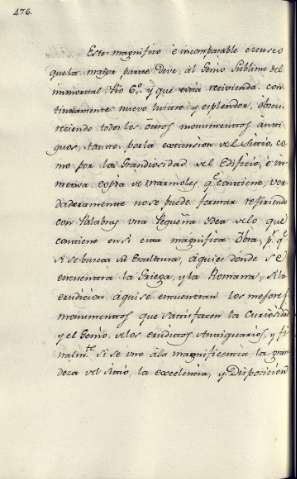 276.
Este magnifico è incomparable
que la mayor parte deve, al Genio Sublime del
inmortal Pio 6.º y que està recivienda con-
tinuamente nuevo lustro y esplendor, obscu-
reciendo todos los otros monumentos anti-
guos, tanto por la extension del Sitio, co
mo por la Grandiosidad del Edificio, è in-
mensa copia de marmoles q.e contiene, ver
daderamente no se puede formar refiriendo
con Palabras una Pequeña Idea de lo que
contiene en si esta magnifica Obra, p.r q.e
si se busca la Escultura, aqui es donde se
encuentra la Griega, y la Romana, si la
erudicion aqui se encuentran los mejores
monumentos que satisfacen la Curiosidad
y el Genio de los eruditos Antiquarios, y fi
nalm.te si se une à la magnificencia la gran
deza del Sitio, la excelencia, y Disposicion